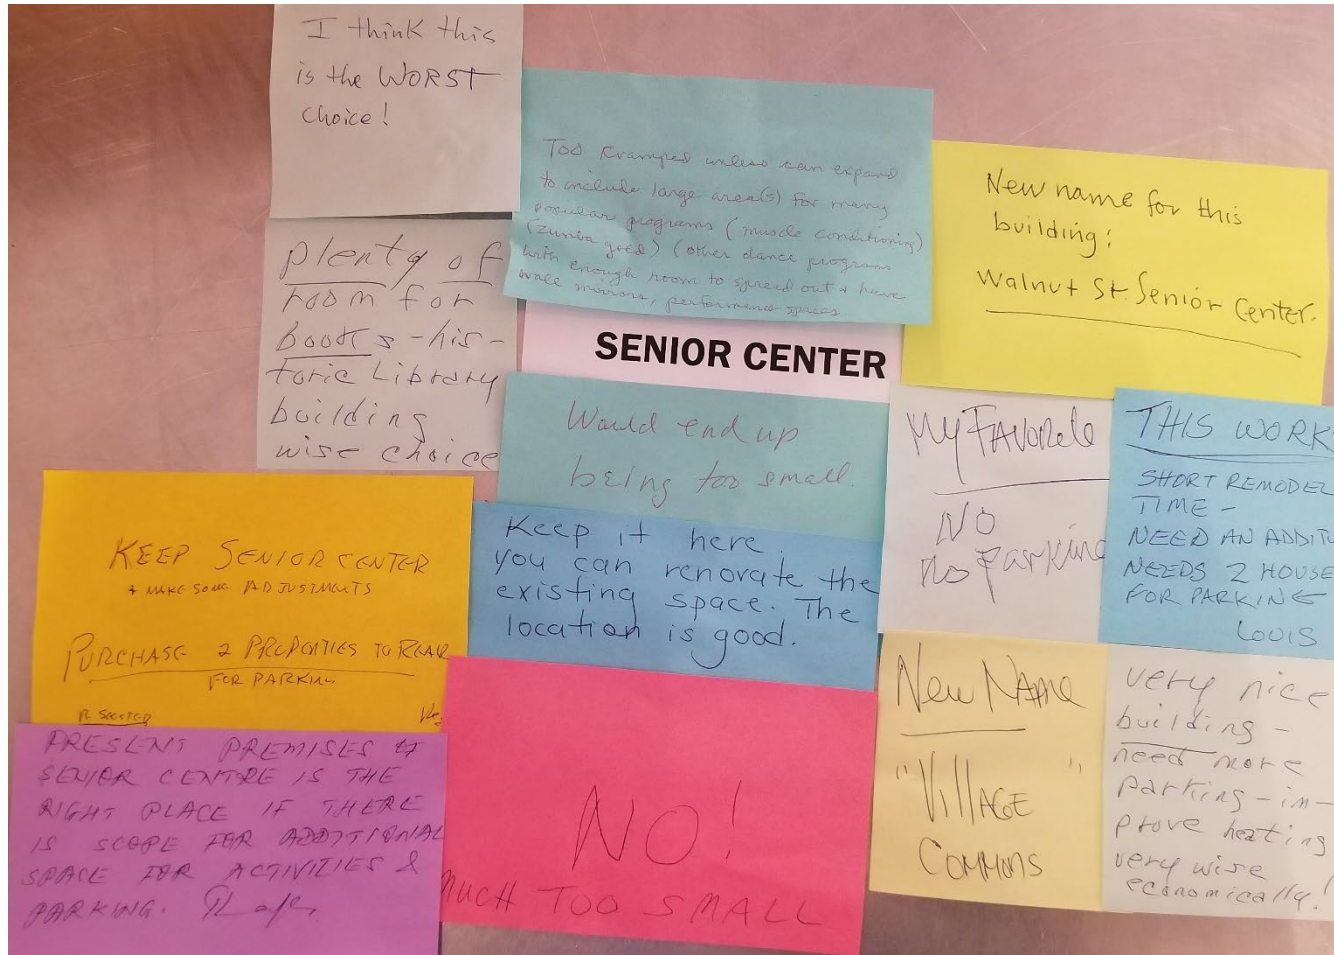 I think this
is the WORST
choice!
Too Kramped unless can expand
to include large area(s) for many
popular programs (muscle conditioning)
(Zumba gold) (other dance programs
with enough room to spread out + have
wall mirrors, performance spaces
New name for this
building:
Walnut St. Senior Center.
plenty of
room for
Books - his-
toric Library
building
wise choice
SENIOR CENTER
Would end up
being too small.
My FAVORITE
NO
no parking
THIS WORK
SHORT REMODEL
TIME -
NEED AN ADDIT
NEEDS 2 HOUSE
FOR PARKING
LOUIS
KEEP SENIOR CENTER
+ MAKE SOME ADJUSTMENTS
PURCHASE 2 PROPERTIES TO REAR
FOR PARKING
Keep it here.
you can renovate the
existing space. The
location is good.
New NAME
"Village
Commons"
very nice
building -
need more
parking - im-
prove heating
very wise
economically!
PRESENT PREMISES OF
SENIOR CENTRE IS THE
RIGHT PLACE IF THERE
IS SCOPE FOR ADDITIONAL
SPACE FOR ACTIVITIES &
PARKING.
NO!
MUCH TOO SMALL